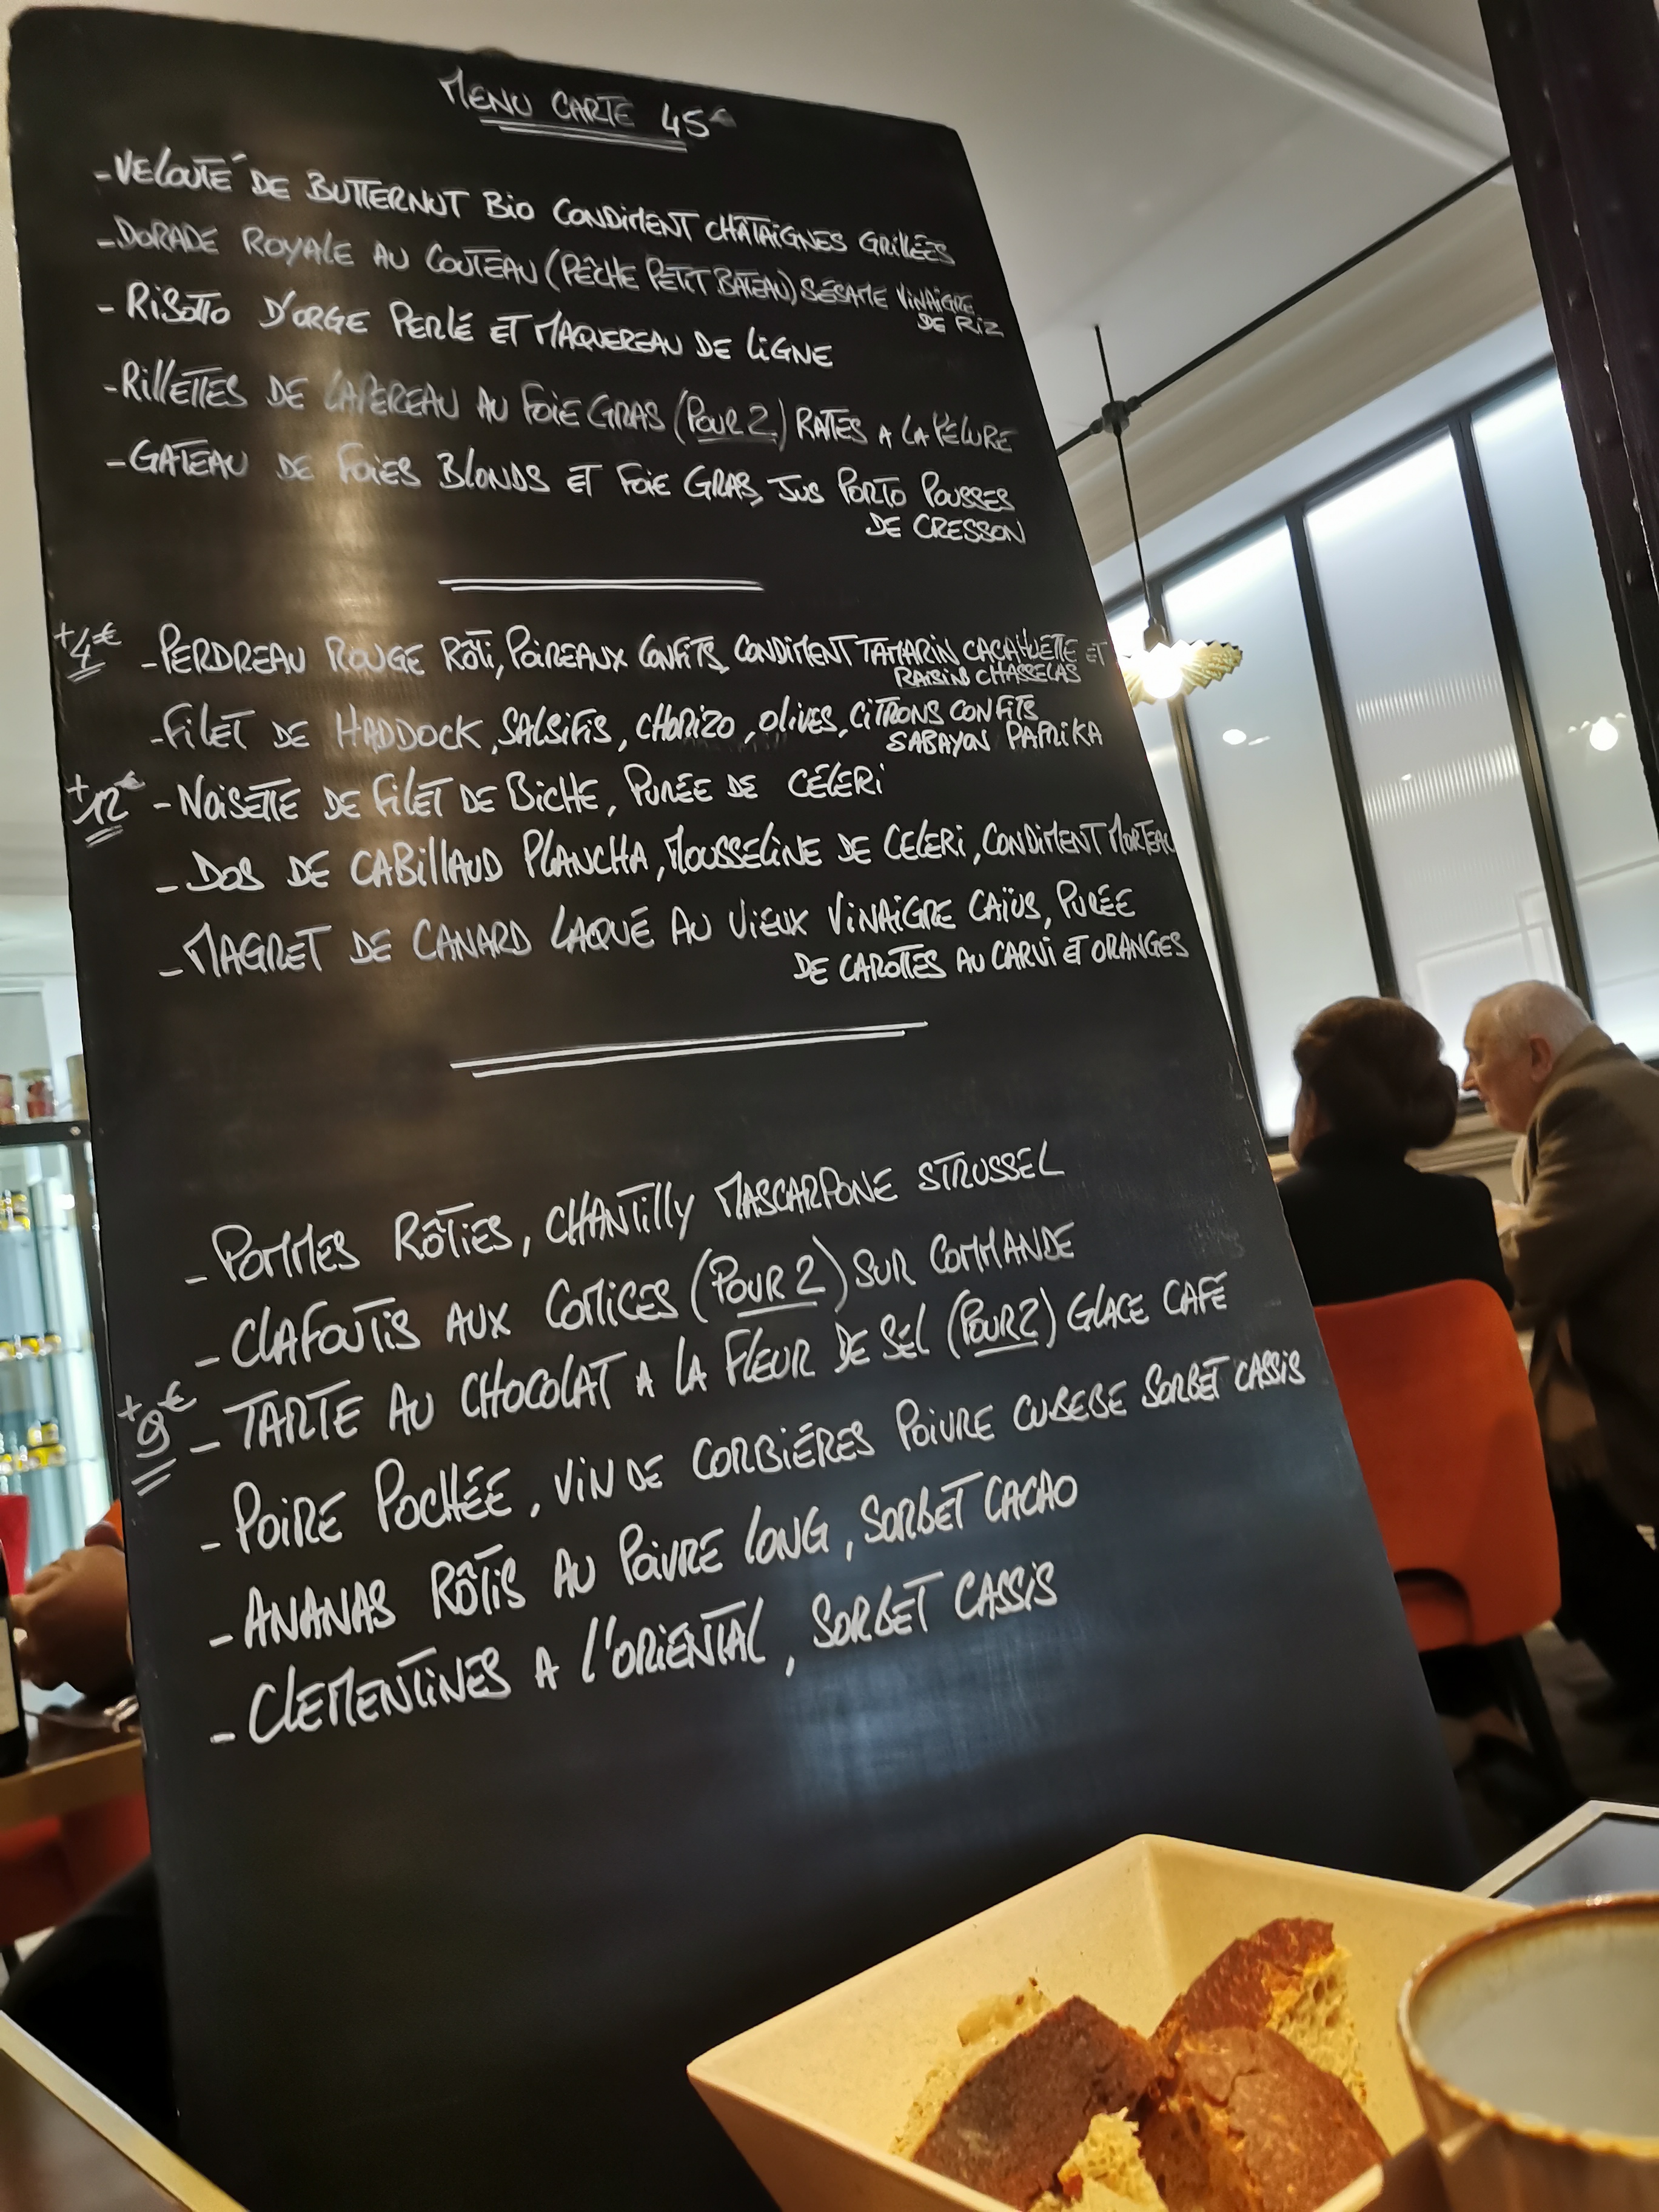 MENU CARTE 45€
- VELOUTÉ DE BUTTERNUT BiO CONDIMENT CHÂTAiGNES GRillÉES
- DORADE ROYALE AU COUTEAU (PÊCHE PETIT BATEAU) SÉSAME ViNAiGRE
DE RiZ
- RiSOTTO D'ORGE PERLÉ ET MAQUEREAU DE LiGNE
- RillETTES DE LAPEREAU AU FOiE GRAS (POUR 2) RATTES A LA PELURE
- GATEAU DE FOiES BLONDS ET FOiE GRAS, JUS PORTO POUSSES
DE CRESSON
+4€ - PERDREAU ROUGE RÔTi, POiREAUX CONFiTS, CONDIMENT TAMARiN CACAHUETTE ET
RAiSiN CHASSELAS
- FiLET DE HADDOCK, SALSiFiS, CHORiZO, OliVES, CiTRONS CONFiTS
SABAYON PAPRiKA
+12€ - NOiSETTE DE FiLET DE BiCHE, PURÉE DE CÉLERi
- DOS DE CABiLLAUD PLANCHA, MOUSSELiNE DE CELERi, CONDiMENT MORTEAU
- MAGRET DE CANARD LAQUÉ AU ViEUX ViNAiGRE CAÏUS, PURÉE
DE CAROTTES AU CARVi ET ORANGES
- POMMES RÔTiES, CHANTiLLY MASCARPONE STRUSSEL
- CLAFOUTiS AUX COMiCES (POUR 2) SUR COMMANDE
+9€ - TARTE AU CHOCOLAT A LA FLEUR DE SEL (POUR 2) GLACE CAFÉ
- POiRE POCHÉE, ViN DE CORBiÉRES POiVRE CUBEBE SORBET CASSiS
- ANANAS RÔTiS AU POiVRE LONG, SORBET CACAO
- CLEMENTiNES A L'ORiENTAL, SORBET CASSiS